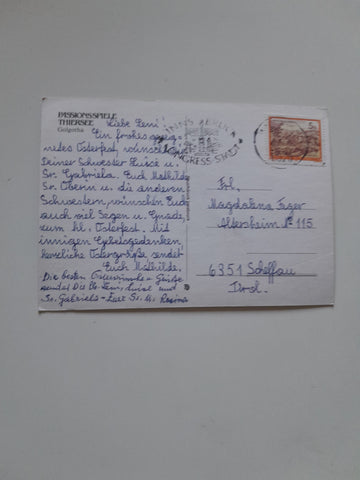 PASSIONSSPIELE
THIERSEE
Golgotha
Liebe Leni!
Ein frohes geseg-
netes Osterfest, wünscht
Deiner Schwester Luise u.
Sr. Gabriela. Euch Mathilde
Sr. Oberin u. die anderen
Schwestern, wünschen Euch
auch viel Segen u. Gnade
zum hl. Osterfest. Mit
innigen Gebetsgedenken,
herzliche Ostergrüße sendet
Euch Mathilde.
Die besten Osterwünsche u. Grüße
sendet Dir lb. Leni, Luise und
Sr. Gabriela - Eure Sr. M. Regina
INNSBRUCK
KONGRESS-STADT
5
Frl.
Magdalena Jager
Altersheim Nº 115
6351 Scheffau
Tirol.